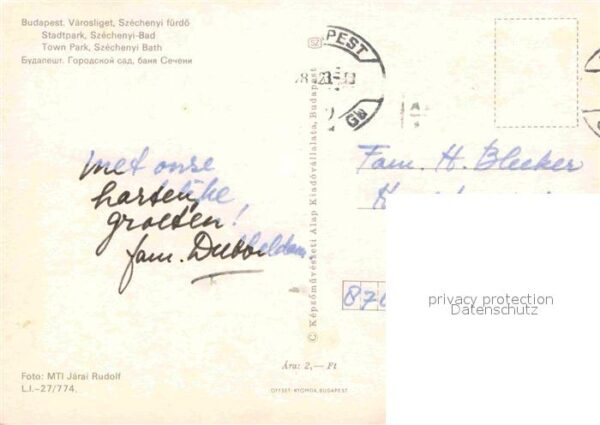 Budapest. Városliget, Széchenyi fürdő
Stadtpark, Széchenyi-Bad
Town Park, Széchenyi Bath
Будапешт. Городской сад, баня Сечени
met onze
hartelijke
groeten!
fam.
Foto: MTI Járai Rudolf
L.I.-27/774.
© Képzőművészeti Alap Kiadóvállalata, Budapest
SZ
PEST
Fam. H. Bleeker
876
Ára: 2,— Ft
OFFSET-NYOMDA, BUDAPEST
privacy protection
Datenschutz